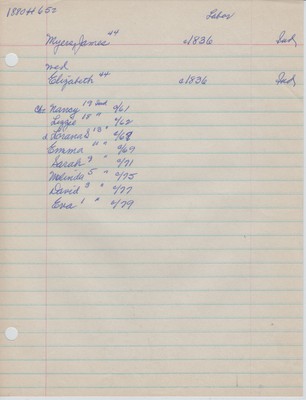 1880 H 650
Labor
Myers, James 44 c1836 Ind
md
Elizabeth 44 c1836 Ind
Ch: Nancy 19 Ind c/61
Lizzie 18 " c/62
d 12 " c/68
Emma 11 " c/69
Sarah 9 " c/71
Melinda 5 " c/75
David 3 " c/77
Eva 1 " c/79